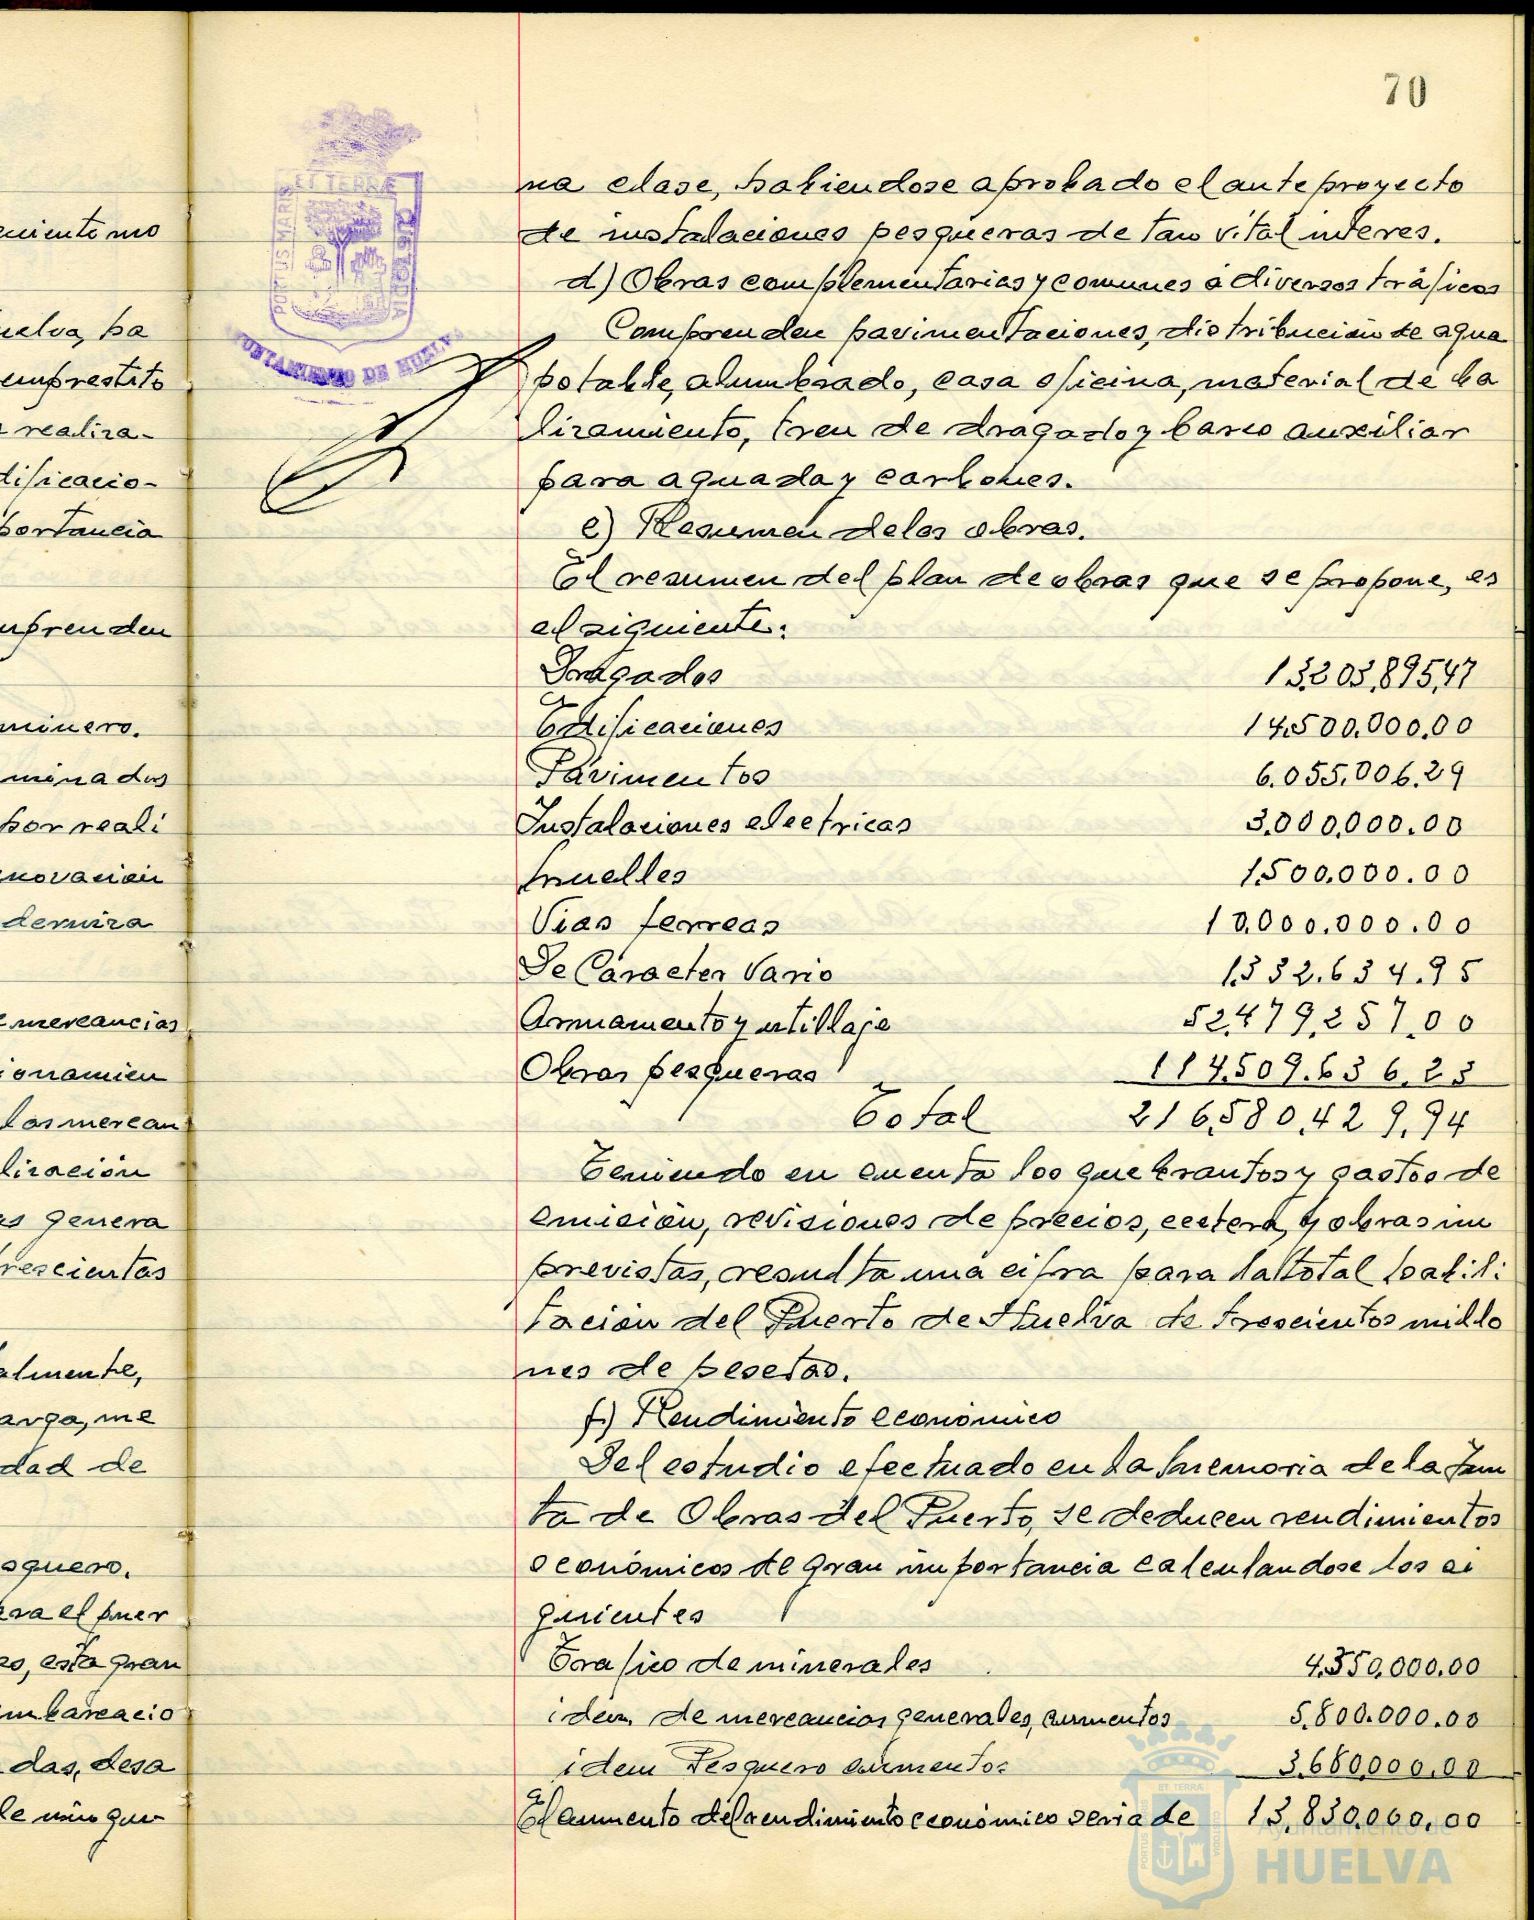 70
na clase, habiendose aprobado el anteproyecto
de instalaciones pesqueras de tan vital interes.
d) Obras complementarias y comunes a diversos tráficos
Comprenden pavimentaciones, distribución de agua
potable, alumbrado, casa oficina, material de ba
lizamiento, tren de dragado y barco auxiliar
para aguada y carbones.
e) Resumen de las obras.
El resumen del plan de obras que se propone, es
el siguiente:
Dragados 13.203.895,47
Edificaciones 14.500.000,00
Pavimentos 6.055.006.29
Instalaciones electricas 3.000.000.00
Muelles 1.500.000.00
Vias ferreas 10.000.000.00
De Caracter Vario 1.332.634.95
Armamento y utillaje 52.479.257.00
Obras pesqueras 114.509.636.23
Total 216.580.429.94
Teniendo en cuenta los quebrantos y gastos de
emisión, revisiones de precios, ecetera, y obras im
previstas, resulta una cifra para la total habili
tación del Puerto de Huelva de trescientos millo
nes de pesetas.
f) Rendimiento económico
Del estudio efectuado en la Memoria de la Jun
ta de Obras del Puerto, se deducen rendimientos
económicos de gran importancia calculandose los si
guientes
Trafico de minerales 4.350,000.00
idem de mercancias generales, aumentos 5.800.000.00
idem Pesquero aumentos 3.680.000.00
El aumento del rendimiento económico seria de 13.830.000,00
PORTUS MARIS ET TERRÆ CUSTODIA
AYUNTAMIENTO DE HUELVA
uelva, ha
emprestito
realiza-
dificacio-
portancia
mprenden
minero.
minados
por reali
novación
derniza
mercancias
ionamien
las mercan
lización
genera
trescientas
almente,
arga, me
dad de
squero.
ara el puer
esta gran
mbarcacio
das, desa
de nin gun
Ayuntamiento de
HUELVA